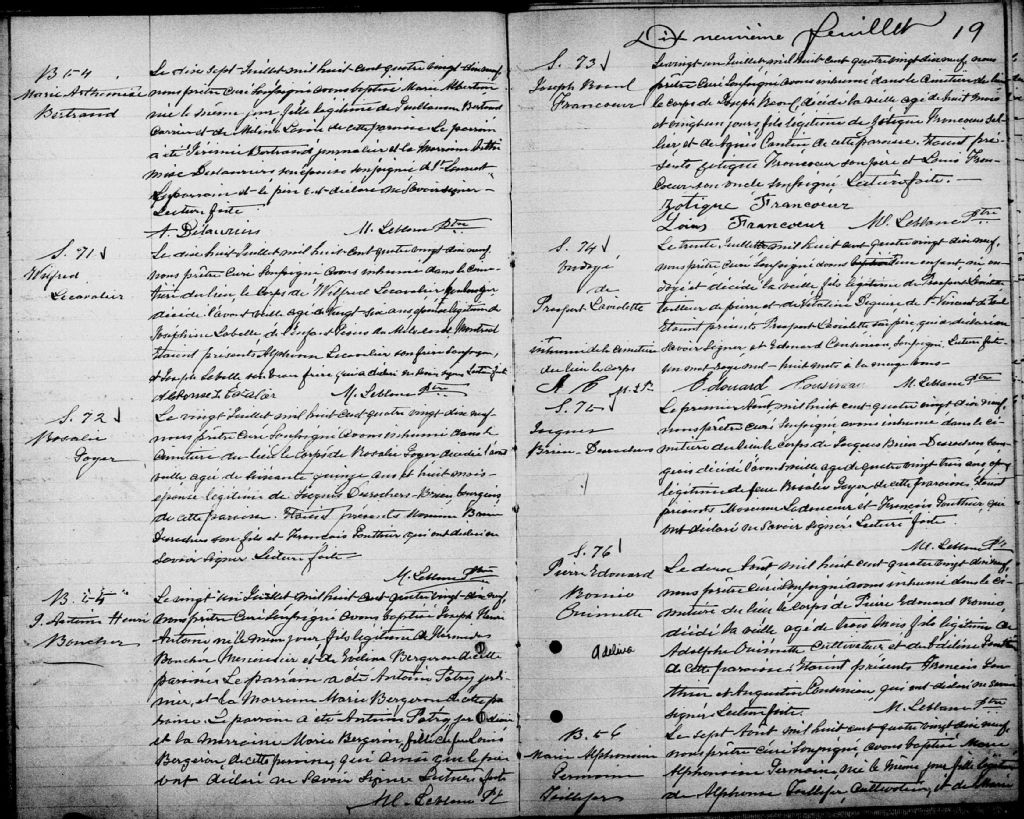 B 54
Marie Arthemise
Bertrand
Le dix sept Juillet mil huit cent quatre vingt dix neuf
nous prêtre Curé soussigné avons baptisé Marie
née le même jour fille légitime de Bertrand
Carrier et de de cette paroisse Le parrain
a été Jérémie Bertrand journalier et la Marraine
Deslauriers son épouse soussignée de St Laurent
Le parrain et le père ont déclaré ne savoir signer
Lecture faite
A. Deslauriers M. Leblanc Ptre
S. 71
Wilfred
Lecavalier
Le dix huit Juillet mil huit cent quatre vingt dix neuf
nous prêtre Curé soussigné avons inhumé dans le Cime
tière du lieu, le Corps de Wilfred Lecavalier
décédé l'avant veille agé de vingt six ans époux légitime de
Joséphine Labelle, de l'Enfant Jésus du Mile End, Montreal
Etaient présents Alphonse Lecavalier son frère soussigné,
et Joseph Labelle son beau frère qui a déclaré ne savoir signer Lecture faite
Alphonse M. Leblanc Ptre
S. 72
Rosalie
Goyer
Le vingt Juillet mil huit cent quatre vingt dix neuf
nous prêtre Curé soussigné avons inhumé dans le
Cimetière du lieu le Corps de Rosalie Goyer décédée l'avant
veille agée de soixante quinze ans et huit mois
épouse légitime de Jacques Desrochers-Brien bourgeois
de cette paroisse. Etaient présents Brien
Desrochers son fils et François Gauthier qui ont déclaré ne
savoir signer Lecture faite
M. Leblanc Ptre
B. 55
J. Antoine Henri
Boucher
Le vingt un Juillet mil huit cent quatre vingt dix neuf
nous prêtre Curé soussigné avons baptisé Joseph Henri
Antoine né le même jour fils légitime de
Boucher Menuisier et de Bergeron de cette
paroisse Le parrain a été Antoine Patry jardi
nier, et la Marraine Marie Bergeron de cette pa
roisse Le parrain a été Antoine Patry jardinier
et la marraine Marie Bergeron, fille de feu Louis
Bergeron, de cette paroisse, qui ainsi que le père
ont déclaré ne savoir signer Lecture faite
M. Leblanc Pt
Dix neuvième feuillet 19
S. 73
Joseph Noel
Francoeur
Le vingt un Juillet mil huit cent quatre vingt dix neuf nous
prêtre Curé soussigné avons inhumé dans le Cimetière du lieu
le corps de Joseph Noel décédé la veille agé de huit mois
et vingt un jours fils légitime de Zotique Francoeur sel
lier et de Agnès Cantin de cette paroisse. Etaient pré
sents Zotique Francoeur son père et Louis Fran
coeur son oncle soussignés Lecture faite.
Zotique Francoeur
Louis Francoeur M. Leblanc Ptre
S. 74
Ondoyé
de
Prospert Laviolette
inhumé de le cimetière
du lieu le corps
Le trente Juillet mil huit cent quatre vingt dix neuf,
nous prêtre Curé soussigné avons un enfant, né on
doyé et décédé la veille fils légitime de Prospert Laviolette
tailleur de pierre et de de St Vincent de Paul
Etaient présents Prospert Laviolette son père, qui a déclaré ne
savoir signer, et Edouard Cousineau, soussigné, Lecture faite
un mot rayé nul - huit mots à la marge bons
Edouard Cousineau M. Leblanc Ptre
S. 75
Jacques
Brien-Desrochers
Le premier Août mil huit cent quatre vingt dix neuf,
nous prêtre Curé soussigné avons inhumé dans le ci
metière du lieu le corps de Jacques Brien-Desrochers bour
geois décédé l'avant veille agé de quatre vingt trois ans époux
légitime de feue Rosalie Goyer de cette paroisse, Etaient
présents Ladouceur et François Gauthier, qui
ont déclaré ne savoir signer Lecture faite.
M. Leblanc Pt
S. 76
Pierre Edouard
Romeo
Ouimette
Adelina
Le deux Août mil huit cent quatre vingt dix neuf,
nous prêtre Curé soussigné avons inhumé dans le ci
metière du lieu le Corps de Pierre Edouard Romeo,
décédé la veille agé de trois mois fils légitime de
Adolphe Ouimette Cultivateur et de Adeline
de cette paroisse. Etaient présents François Gau
thier et Augustin Cousineau qui ont déclaré ne savoir
signer Lecture faite. M. Leblanc Ptre
B. 56
Marie Alphonsine
Germaine
Taillefer
Le sept Août mil huit cent quatre vingt dix neuf,
nous prêtre Curé soussigné avons baptisé Marie
Alphonsine Germaine, née le même jour fille légitime
de Alphonse Taillefer, Cultivateur, et de Marie